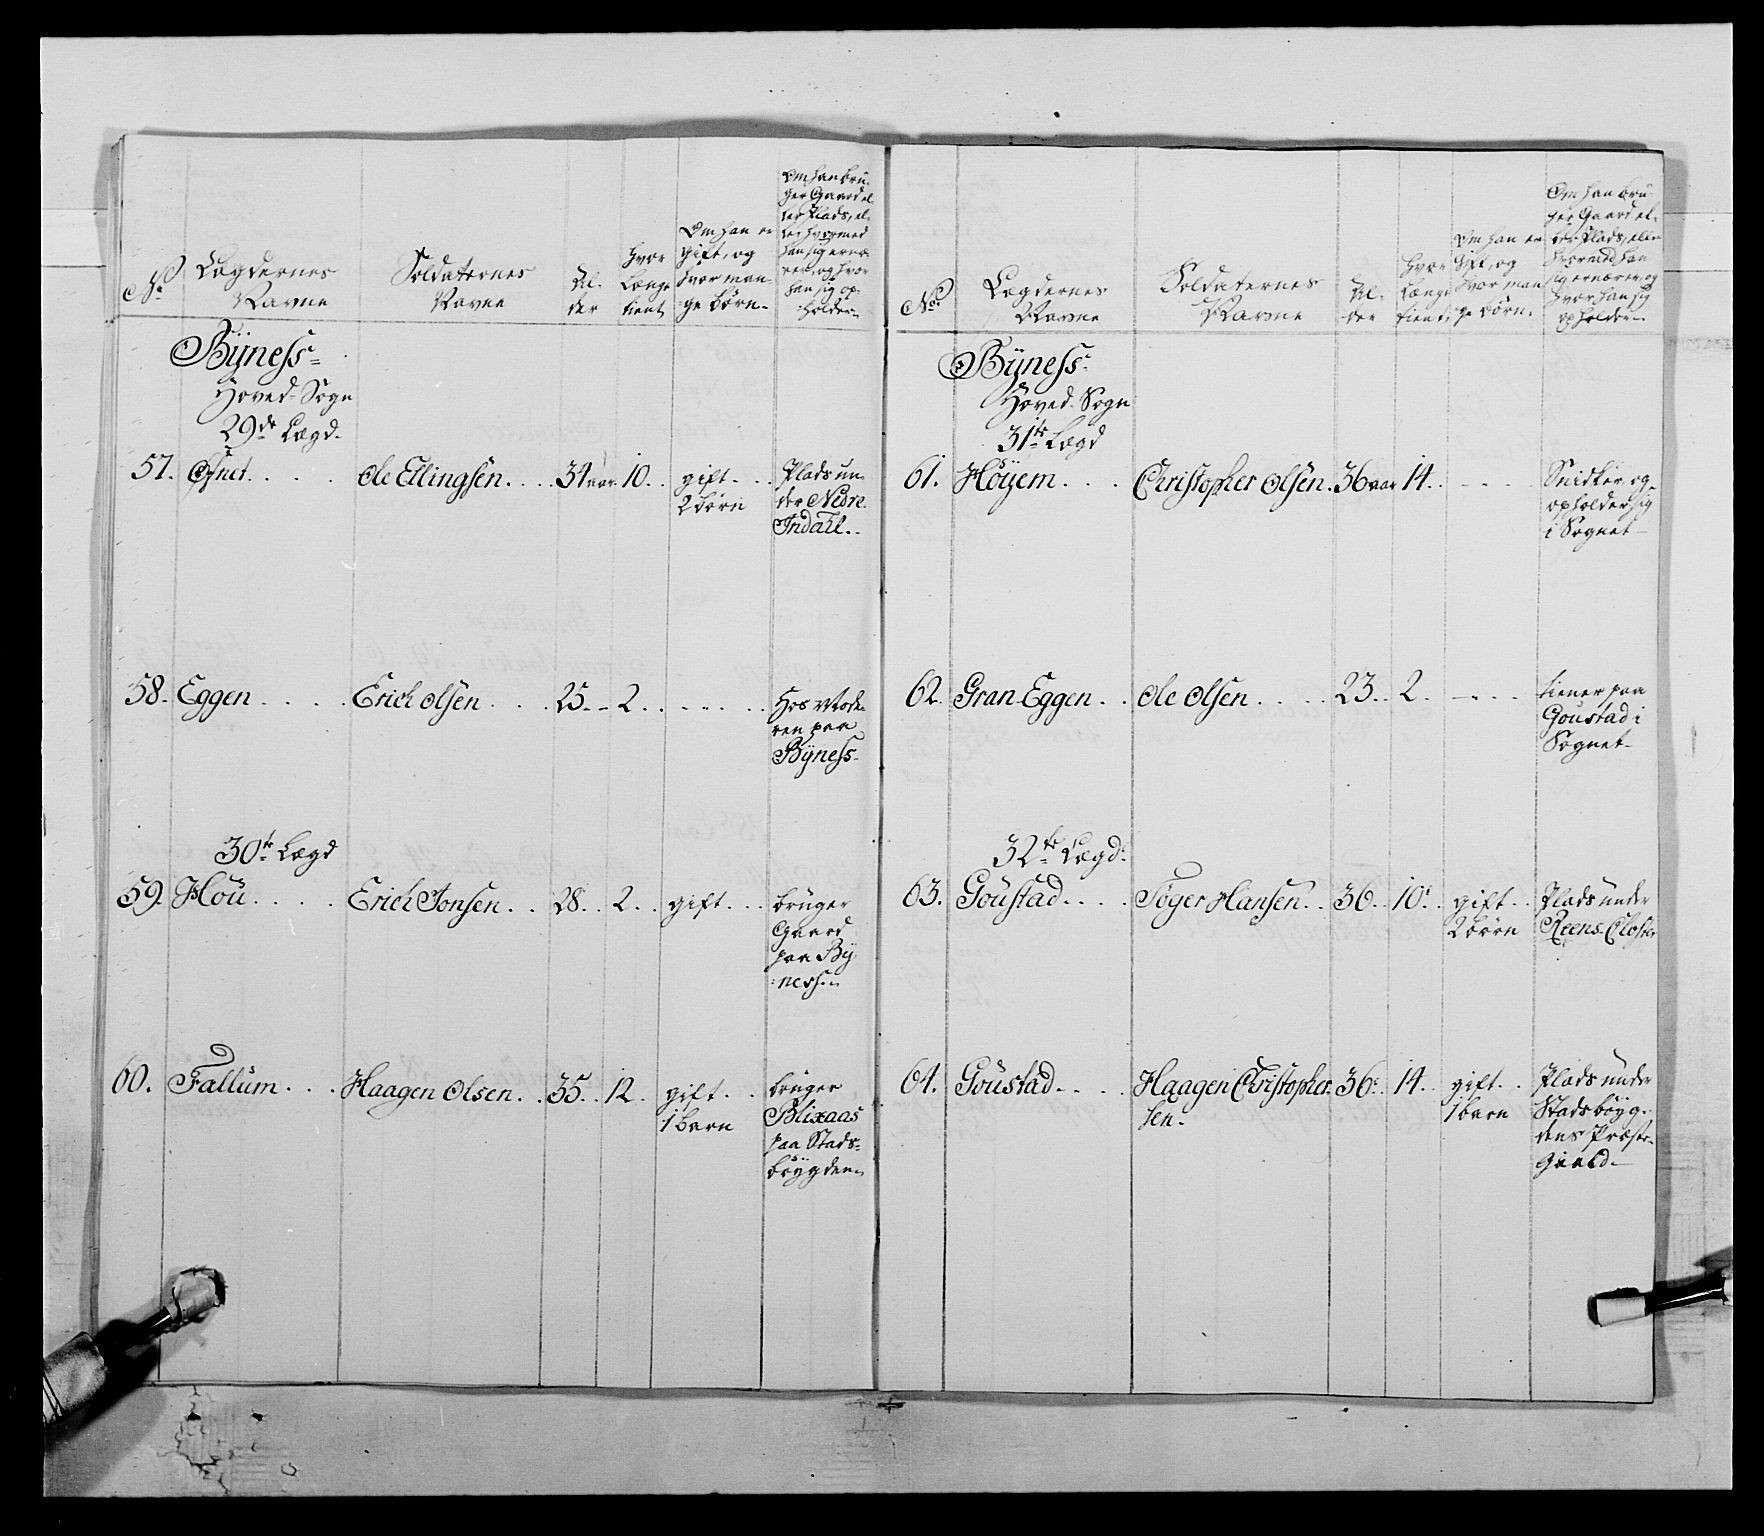 No
Lægdernes
Navne
Soldaternes
Navne
Al-
der
hvor
Længe
tient
Om han er
gift, og
hvor man-
ge börn-
Om han bru-
ger Gaard el-
ler Plads, el-
ler hvormed
han sig ernæ-
rer, og hvor
han sig op-
holder-
Bÿness=
Hoved-Sogn
29de Lægd-
57. . . . . Ole Ellingsen. . . . 34 aar. 10. . gift. . . Plads un-
2 börn der Nedre
Indahl. .
58. Eggen . . . . Erich Olsen . . . . 25. - 2. . . - . . . Hos Mode-
ren paa
Bÿness-
30te Lægd
59. Höu. . . . . Erich Jonsen. . . 28. . 2. . gift. . . bruger
Gaard
paa Bÿ-
ness.
60. Fallum. . . . Haagen Olsen. . . 35. . 12. . gift. . . bruger
1 barn Blixaas
paa Stads-
böygden
No
Lægdernes
Navne
Soldaternes
Navne
Al-
der
hvor
Længe
tient
Om han er
Gift, og
hvor man-
ge börn.
Om han bru-
ger Gaard el-
ler Plads, eller
hvormed han
sig ernærer, og
hvor han sig
opholder-
Bÿness-
Hoved-Sogn
31te Lægd
61. Höÿem. . . . Christopher Olsen. 36 aar 14. . - . . . Snidker og
opholder sig
i Sognet-
62. Gran-Eggen . . Ole Olsen. . . . . 23. . 2. . - . . . tiener paa
Goustad i
Sognet-
32te Lægd:
63. Goustad. . . . Söger Hansen. . . 36. . 10. . gift. . . Plads under
2 börn Reens-Closter
64. Goustad. . . . Haagen Christopher- 36. . 14. . gift. . . Plads under
sen. 1 barn Stadsböyg-
dens Præste-
Gield-